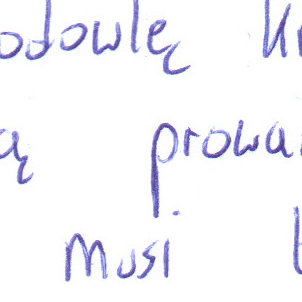 odowlę
ą prowa
Musi